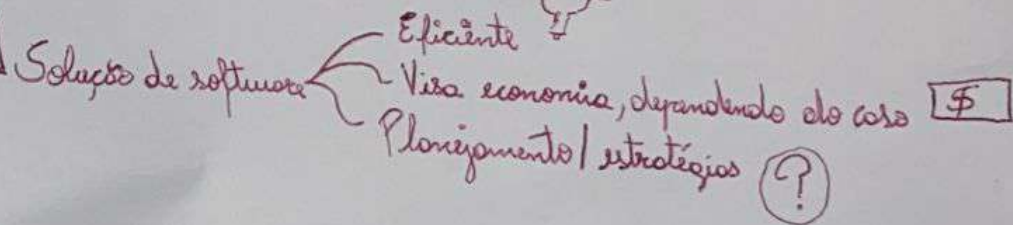 Solução de software
Eficiente
Visa economia, dependendo do caso $
Planejamento/estratégias ?